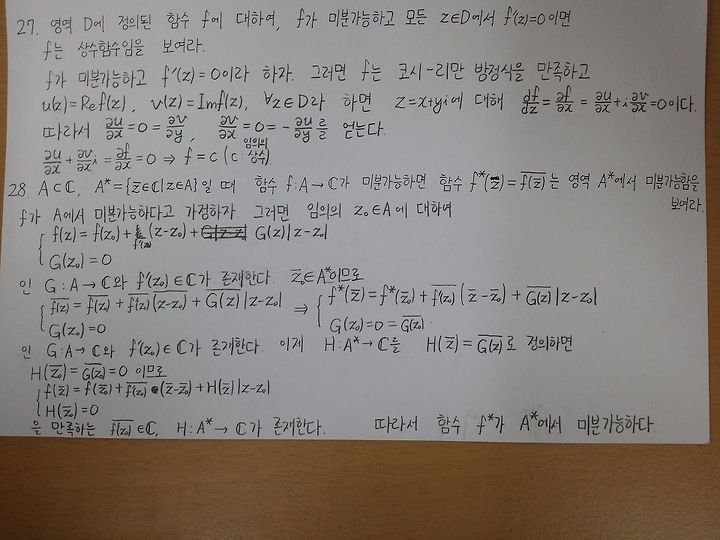 27. 영역 D에 정의된 함수 f에 대하여, f가 미분가능하고 모든 z∈D에서 f'(z)=0이면
f는 상수함수임을 보여라.
f가 미분가능하고 f'(z)=0이라 하자. 그러면 f는 코시-리만 방정식을 만족하고
u(z)=Ref(z), v(z)=Imf(z), ∀z∈D라 하면 z=x+yi에 대해 df/dz=∂f/∂x=∂u/∂x+i∂v/∂x=0이다.
따라서 ∂u/∂x=0=∂v/∂y, ∂v/∂x=0=-∂u/∂y를 얻는다.
∂u/∂x+∂v/∂x i=∂f/∂x=0 ⇒ f=c (c: 임의의 상수)
28. A⊂C, A*={z̄∈C|z∈A}일 때 함수 f:A→C가 미분가능하면 함수 f*(z̄)=\overline{f(z)}는 영역 A*에서 미분가능함을
보여라.
f가 A에서 미분가능하다고 가정하자. 그러면 임의의 z₀∈A에 대하여
{ f(z)=f(z₀)+f'(z₀)(z-z₀)+G(z)|z-z₀|
G(z₀)=0
인 G:A→C와 f'(z₀)∈C가 존재한다 z̄₀∈A*이므로
{ \overline{f(z)}=\overline{f(z₀)}+\overline{f'(z₀)}\overline{(z-z₀)}+\overline{G(z)}|z-z₀| ⇒ { f*(z̄)=f*(z̄₀)+\overline{f'(z₀)}(z̄-z̄₀)+\overline{G(z)}|z-z₀|
G(z₀)=0 G(z₀)=0=\overline{G(z₀)}
인 G:A→C와 f'(z₀)∈C가 존재한다 이제 H:A*→C를 H(z̄)=\overline{G(z)}로 정의하면
H(z̄₀)=\overline{G(z₀)}=0이므로
{ f(z̄)=f(z̄₀)+\overline{f'(z₀)}(z̄-z̄₀)+H(z̄)|z-z₀|
H(z̄₀)=0
을 만족하는 \overline{f'(z₀)}∈C, H:A*→C가 존재한다. 따라서 함수 f*가 A*에서 미분가능하다